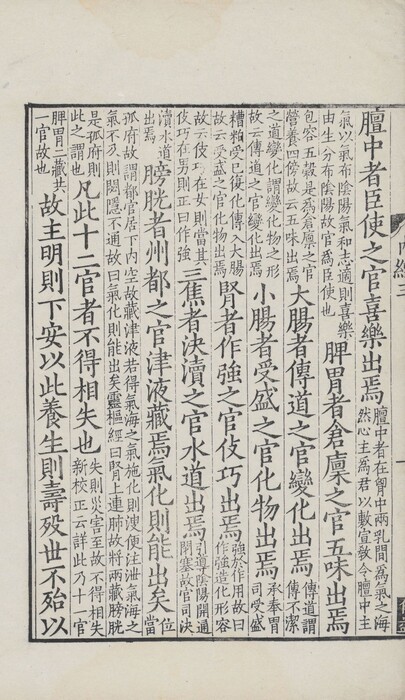 膻中者臣使之官喜樂出焉
膻中者在胷中兩乳間為氣之海
然心主為君以敷宣教令膻中主
氣以氣布陰陽氣和志適則喜樂
由生分布陰陽故官為臣使也
脾胃者倉廩之官五味出焉
包容五穀是為倉廩之官
營養四傍故云五味出焉
大腸者傳道之官變化出焉
傳道謂
傳不潔
之道變化謂變化物之形
故云傳道之官變化出焉
小腸者受盛之官化物出焉
承奉胃
司受盛
糟粕受已復化傳入大腸
故云受盛之官化物出焉
腎者作強之官伎巧出焉
強於作用故曰
作強造化形容
故云伎巧在女則當其
伎巧在男則正曰作強
三焦者決瀆之官水道出焉
引導陰陽開通
閉塞故官司決
瀆水道
出焉
膀胱者州都之官津液藏焉氣化則能出矣
位
當
孤府故謂都官居下內空故藏津液若得氣海之氣施化則溲便注泄氣海之
氣不及則閟隱不通故曰氣化則能出矣靈樞經曰腎上連肺故將兩藏膀胱
是孤府則
此之謂也
凡此十二官者不得相失也
失則災害至故不得相失
新校正云詳此乃十一官
脾胃二藏共
一官故也
故主明則下安以此養生則壽歿世不殆以